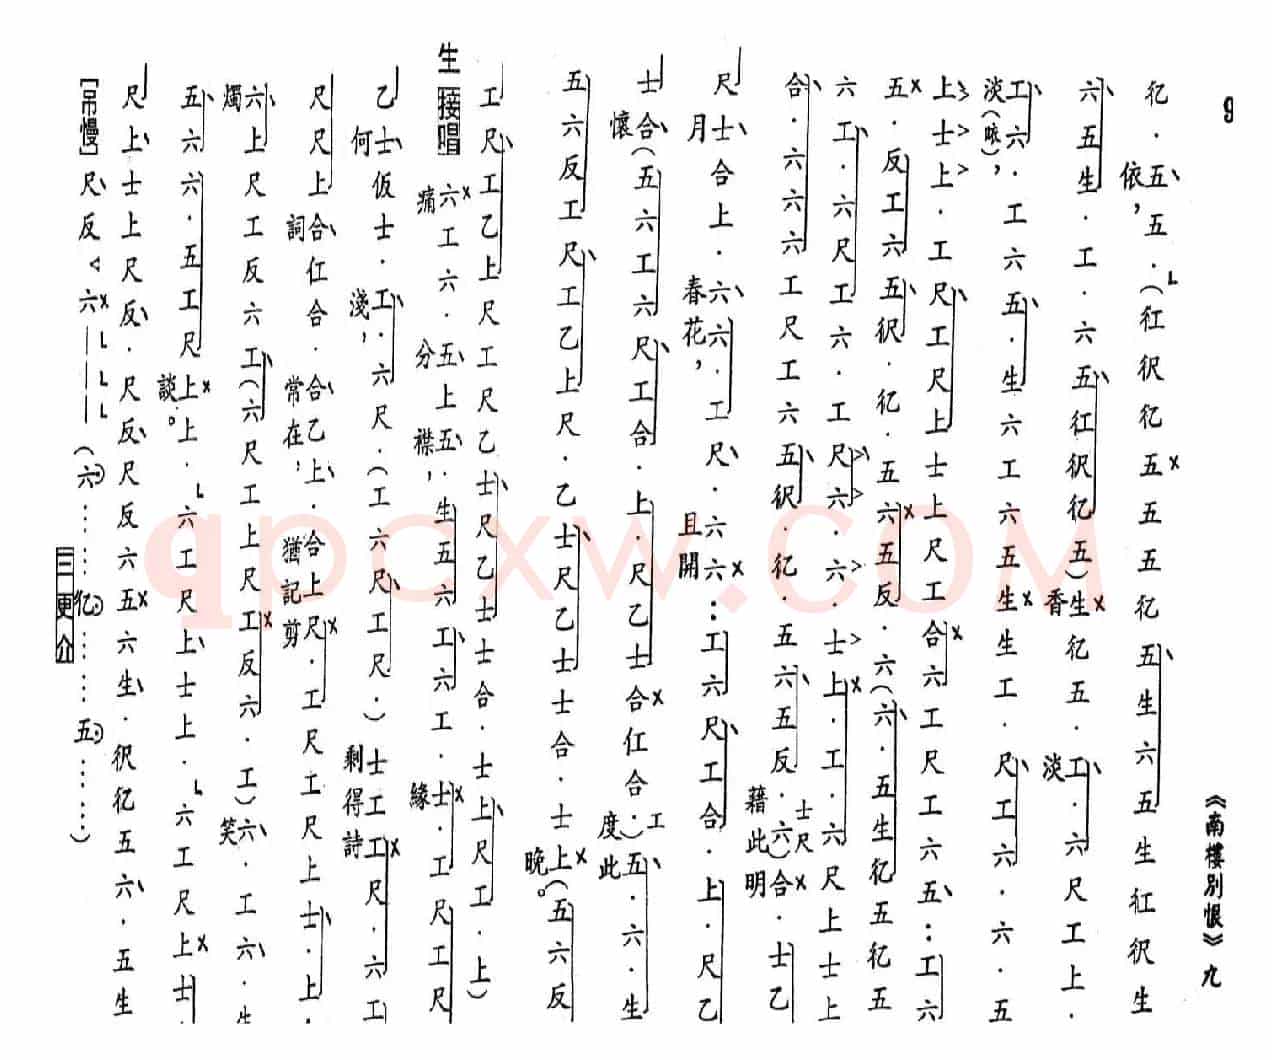 9
《南樓別恨》九
伬．五、五．(仜伬亿五五五亿五、生六五生仜伬生
依，
六、五生．工．六五、仜伬亿五)生亿五．工、．六尺工上．
香 淡
工、六．工六五、．生六工六五生生工．尺、工六．六．五
淡(咳)，
上士上．工尺、工尺上士上尺工合六工尺工六五、：工六
五．反工六五、伬．亿．五六五反．六(六、．五生亿五亿五
六工、．六尺工六．工尺六．六．士上．工．六尺上士上
合、．六六六工尺工六五、伬．亿．五六、五反．六)合．士乙
士尺
藉此明
尺士、合上．六、六．工尺、．六六：工六尺、工合．上．尺乙
月 春花， 且開
士合、(五六工六尺、工合．上．尺乙士合仁合．)五、．六．生
工
懷 度此
五、六反工尺、工乙上尺．乙士、尺乙士士合．士上(五六反
晚。
工尺、工乙上尺工尺乙士、尺乙士士合．士上、尺工．上)
生 接唱
六工六．五、上五、．生五六工、六工．士．工尺工尺
痛 分 襟， 緣
乙士、伬士．工、．六尺．(工六尺、工尺．)士工工尺．六工
何 淺， 剩得詩
尺尺上合、仁合．合、乙上、．合上尺．工尺工尺上士、．上．
詞 常在， 猶記剪
六、上尺工反六工、(六尺工上尺工反六．工)六、．工六、．生
燭 笑
五、六六．五工尺上上．六工尺上、士上．六工尺上士
談。
尺上、士上尺反、．尺反、尺反六五六生、．伬亿五六、．五生
[吊慢]尺、反 六———(六……亿……五……)
三更介
qpcxw.com